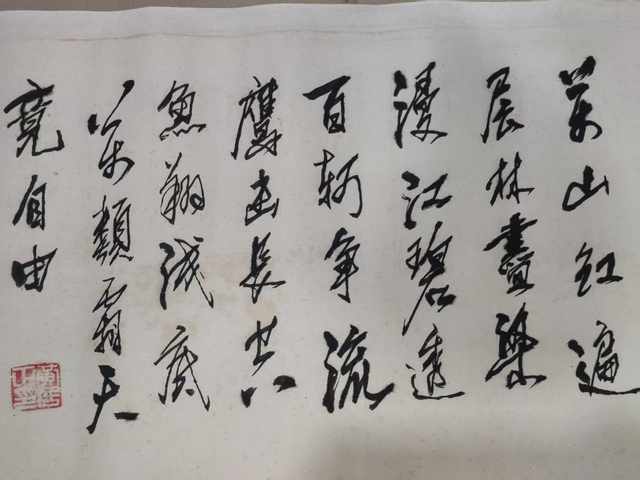 萬山红遍
层林盡染
漫江碧透
百舸争流
鷹击長空
魚翔浅底
萬類霜天
竞自由